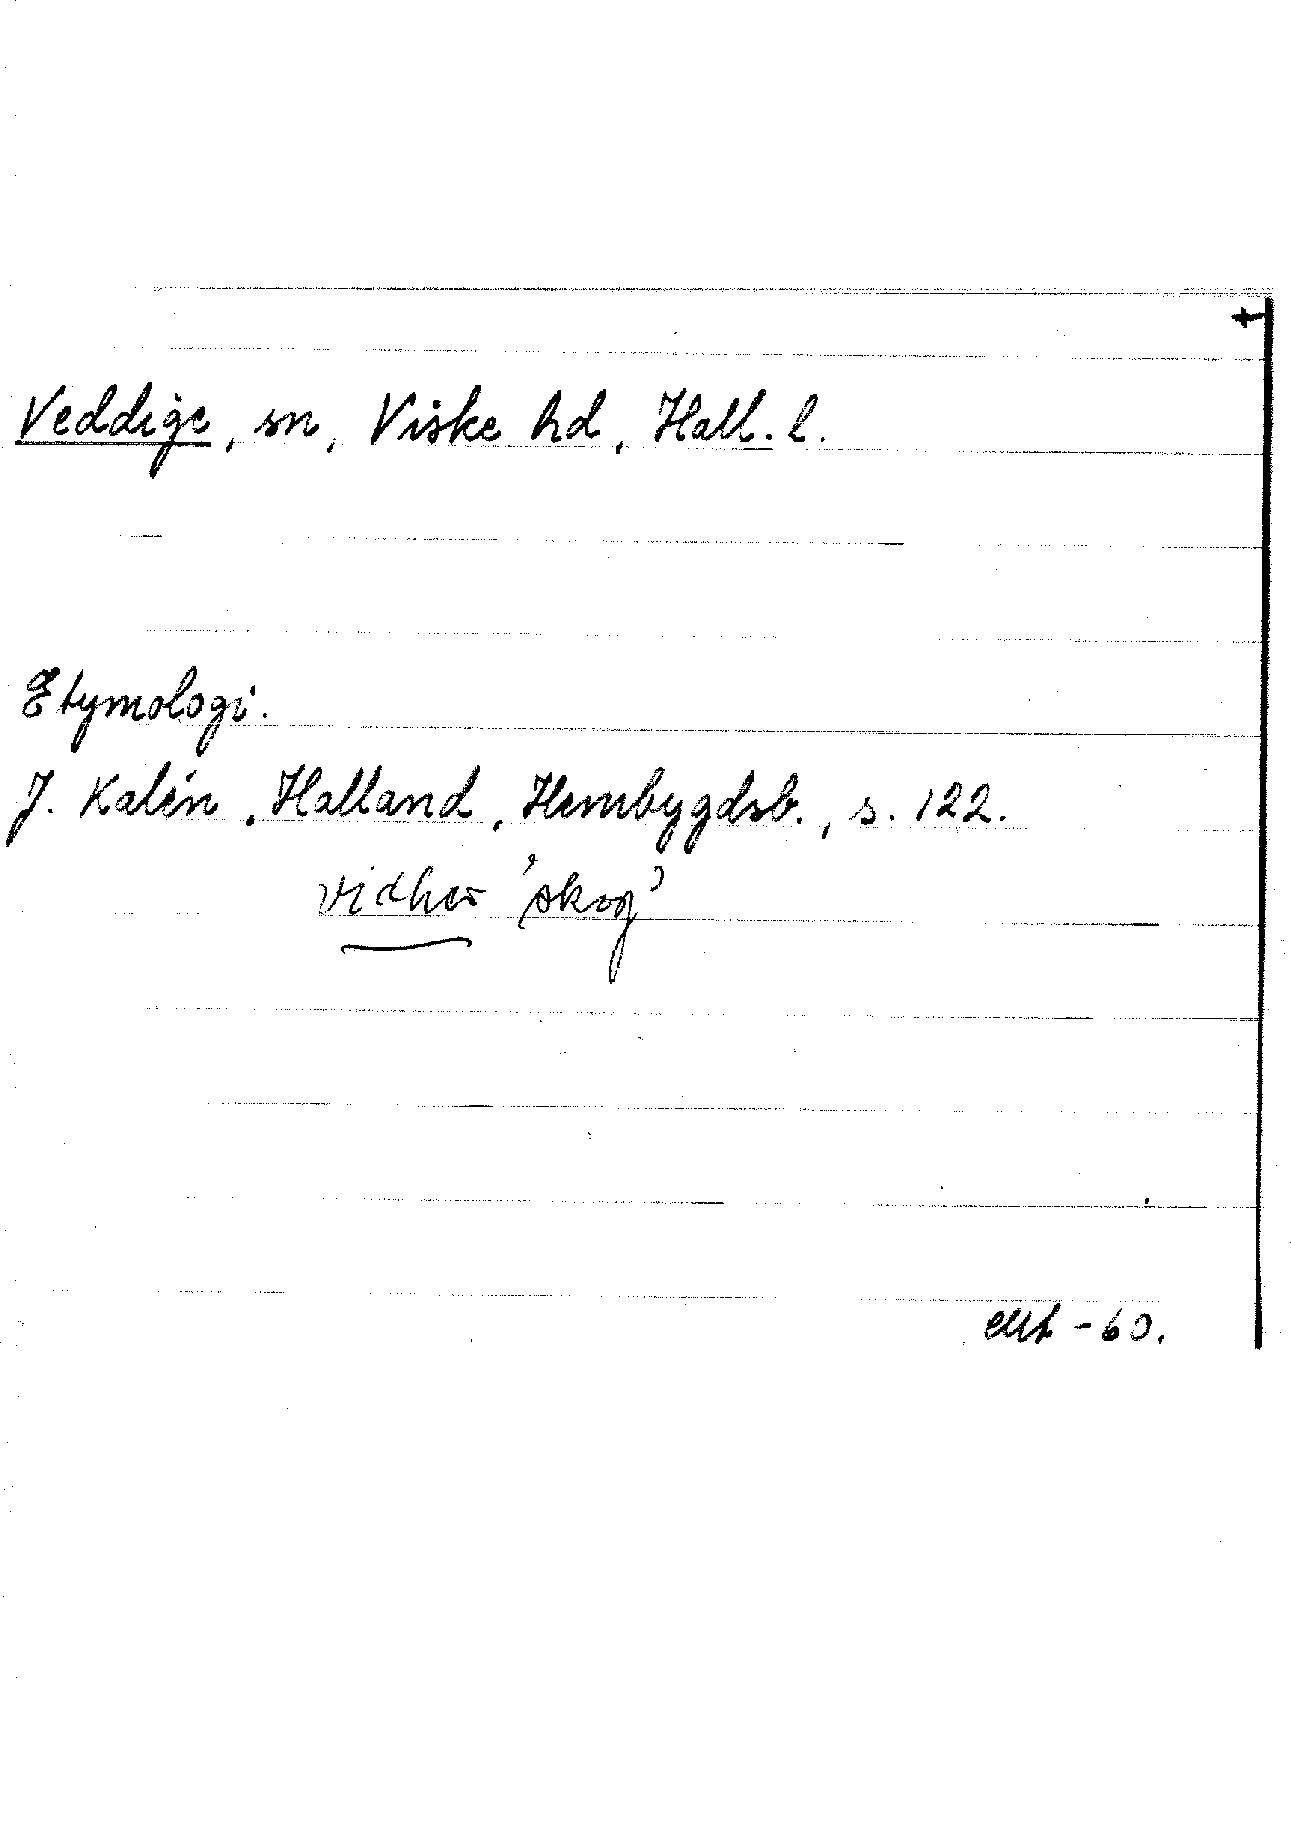 Veddige, sn, Viske hd, Hall. l.
Etymologi.
J. Kalén, Halland, Hembygdsb., s. 122.
vidher 'skog'
-60.